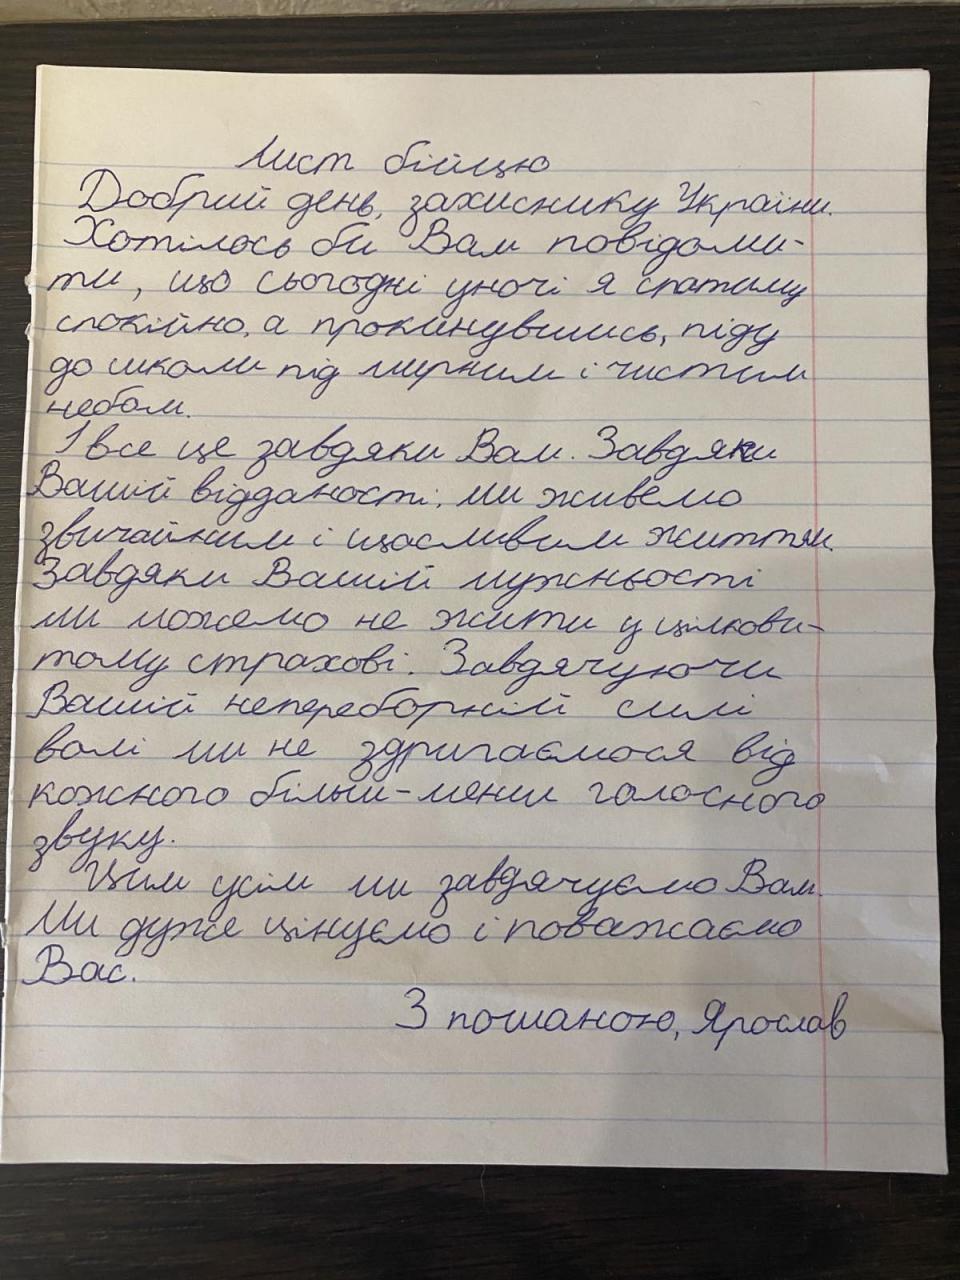 Лист бійцю
Добрий день, захиснику України.
Хотілось би Вам повідоми-
ти, що сьогодні уночі я спатиму
спокійно, а прокинувшись, піду
до школи під мирним і чистим
небом.
І все це завдяки Вам. Завдяки
Вашій відданості, ми живемо
звичайним і щасливим життям.
Завдяки Вашій мужньості
ми можемо не жити у цілкови-
тому страхові. Завдячуючи
Вашій непереборній силі
волі ми не здригаємося від
кожного більш-менш голосного
звуку.
Цим усім ми завдячуємо Вам.
Ми дуже цінуємо і поважаємо
Вас.
З пошаною, Ярослав